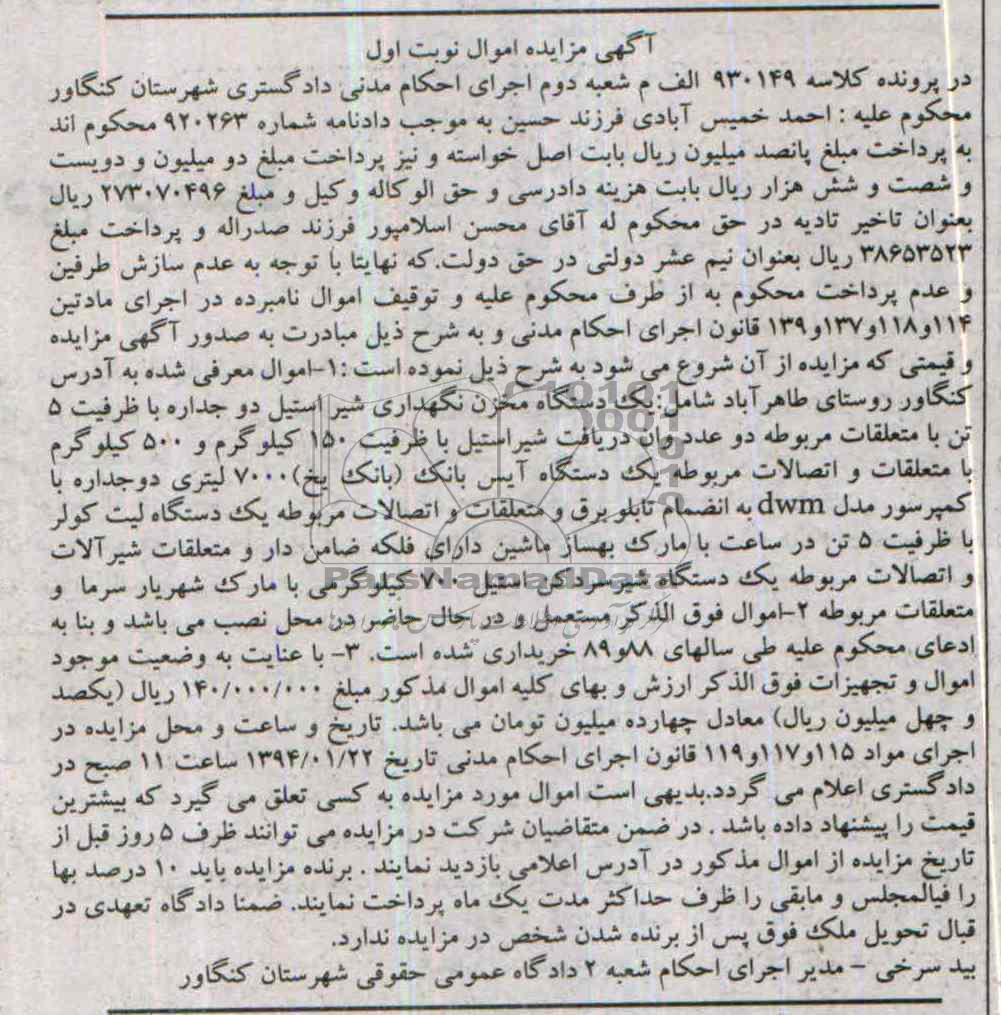 آگهی مزایده اموال نوبت اول
در پرونده کلاسه ۹۳۰۱۴۹ الف م شعبه دوم اجرای احکام مدنی دادگستری شهرستان کنگاور
محکوم علیه : احمد خمیس آبادی فرزند حسین به موجب دادنامه شماره ۹۲۰۲۶۳ محکوم اند
به پرداخت مبلغ پانصد میلیون ریال بابت اصل خواسته و نیز پرداخت مبلغ دو میلیون و دویست
و شصت و شش هزار ریال بابت هزینه دادرسی و حق الوکاله وکیل و مبلغ ۲۷۳۰۷۰۴۹۶ ریال
بعنوان تاخیر تادیه در حق محکوم له آقای محسن اسلامپور فرزند صدراله و پرداخت مبلغ
۳۸۶۵۳۵۲۳ ریال بعنوان نیم عشر دولتی در حق دولت.که نهایتا با توجه به عدم سازش طرفین
و عدم پرداخت محکوم به از طرف محکوم علیه و توقیف اموال نامبرده در اجرای مادتین
۱۱۴و۱۱۸و۱۳۷و۱۳۹ قانون اجرای احکام مدنی و به شرح ذیل مبادرت به صدور آگهی مزایده
و قیمتی که مزایده از آن شروع می شود به شرح ذیل نموده است :۱-اموال معرفی شده به آدرس
کنگاور روستای طاهرآباد شامل:یک دستگاه مخزن نگهداری شیر استیل دو جداره با ظرفیت ۵
تن با متعلقات مربوطه دو عدد وان دریافت شیراستیل با ظرفیت ۱۵۰ کیلوگرم و ۵۰۰ کیلوگرم
با متعلقات و اتصالات مربوطه یک دستگاه آیس بانک (بانک یخ)۷۰۰۰ لیتری دوجداره با
کمپرسور مدل dwm به انضمام تابلو برق و متعلقات و اتصالات مربوطه یک دستگاه لیت کولر
با ظرفیت ۵ تن در ساعت با مارک بهساز ماشین دارای فلکه ضامن دار و متعلقات شیرآلات
و اتصالات مربوطه یک دستگاه شیرسردکن استیل ۷۰۰ کیلوگرمی با مارک شهریار سرما و
متعلقات مربوطه ۲-اموال فوق الذکر مستعمل و در حال حاضر در محل نصب می باشد و بنا به
ادعای محکوم علیه طی سالهای ۸۸و۸۹ خریداری شده است. ۳- با عنایت به وضعیت موجود
اموال و تجهیزات فوق الذکر ارزش و بهای کلیه اموال مذکور مبلغ ۱۴۰/۰۰۰/۰۰۰ ریال (یکصد
و چهل میلیون ریال) معادل چهارده میلیون تومان می باشد. تاریخ و ساعت و محل مزایده در
اجرای مواد ۱۱۵و۱۱۷و۱۱۹ قانون اجرای احکام مدنی تاریخ ۱۳۹۴/۰۱/۲۲ ساعت ۱۱ صبح در
دادگستری اعلام می گردد.بدیهی است اموال مورد مزایده به کسی تعلق می گیرد که بیشترین
قیمت را پیشنهاد داده باشد . در ضمن متقاضیان شرکت در مزایده می توانند ظرف ۵ روز قبل از
تاریخ مزایده از اموال مذکور در آدرس اعلامی بازدید نمایند . برنده مزایده باید ۱۰ درصد بها
را فیالمجلس و مابقی را ظرف حداکثر مدت یک ماه پرداخت نمایند. ضمنا دادگاه تعهدی در
قبال تحویل ملک فوق پس از برنده شدن شخص در مزایده ندارد.
بید سرخی - مدیر اجرای احکام شعبه ۲ دادگاه عمومی حقوقی شهرستان کنگاور
ParsNamadData